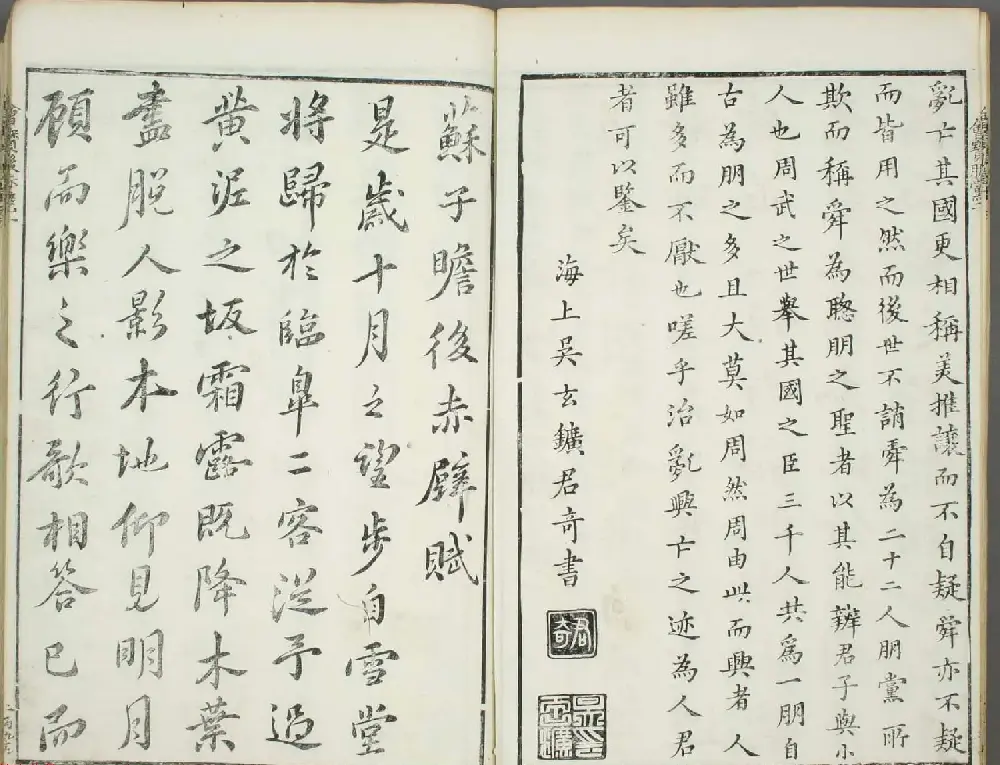 亂亡其國更相稱美推讓而不自疑舜亦不疑
而皆用之然而後世不誚舜為二十二人朋黨所
欺而稱舜為聰朋之聖者以其能辨君子與小
人也周武之世舉其國之臣三千人共為一朋自
古為朋之多且大莫如周然周由此而興者人
雖多而不厭也嗟乎治亂興亡之迹為人君
者可以鑒矣
海上吳玄鑛君奇書
君奇
蘇子瞻後赤壁賦
是歲十月之望步自雪堂
將歸於臨皐二客從予過
黃泥之坂霜露既降木葉
盡脫人影木地仰見明月
顧而樂之行歌相答已而